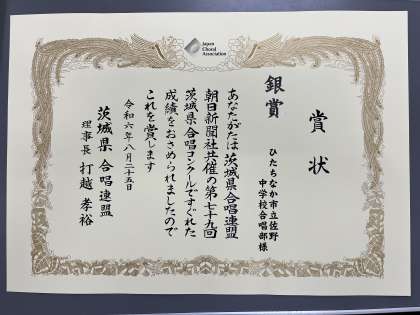 Japan
Choral
Association
賞状
銀賞
ひたちなか市立佐野
中学校合唱部様
あなたがたは茨城県合唱連盟
朝日新聞社共催の第七十九回
茨城県合唱コンクールですぐれた
成績をおさめられましたので
これを賞します
令和六年八月二十五日
茨城県合唱連盟
理事長 打越孝裕